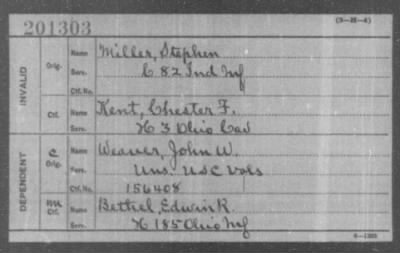 201303
(3—H—4)
INVALID
Orig.
Name Miller, Stephen
Serv. C 82 Ind Inf
Ctf. No.
Ctf.
Name Kent, Chester F.
Serv. H 3 Ohio Cav
DEPENDENT
C
Orig.
Name Weaver, John W.
Serv. Uns. U S C Vols
Ctf. No. 156408
m
Ctf.
Name Bethel, Edwin R
Serv. H 185 Ohio Inf